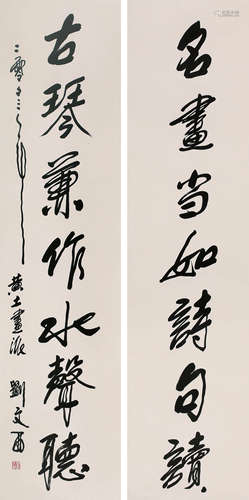 名畫当如詩句讀
古琴兼作水聲聽
二零
黄土畫派 劉文西